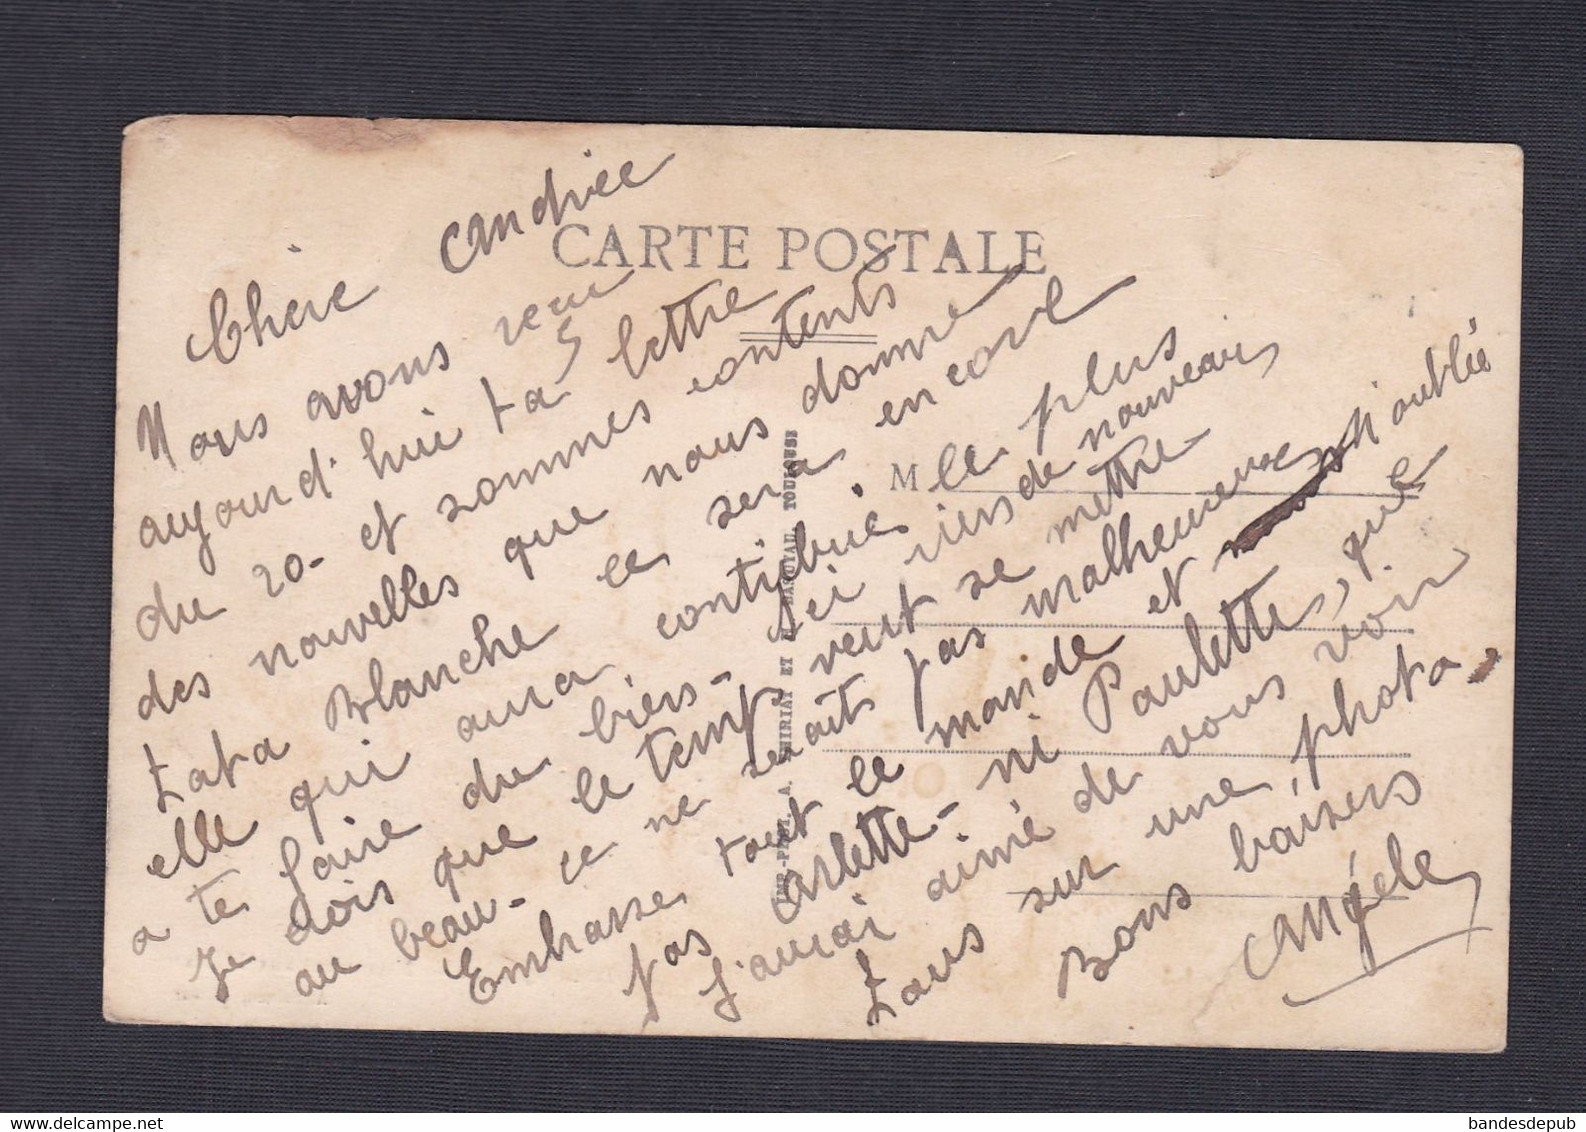 CARTE POSTALE
Chère Andrée
Nous avons recu
aujourd'hui ta lettre
du 20 - et sommes contents
des nouvelles que nous donne
tata Blanche ce sera encore
elle qui aura contribué le plus
a te faire du bien - ici rien de nouveau,
Je crois que le temps veut se mettre
au beau - ce ne serait pas malheureux
Embrasse tout le monde et n'oublie
pas Arlette - ni Paulette, que
j'aurai aimé de vous voir
tous sur une photo,
Bons baisers
Angèle
M
IMP.-PHOT. A. THIRIAT ET BASUYAU, TOULOUSE
bandesdepub